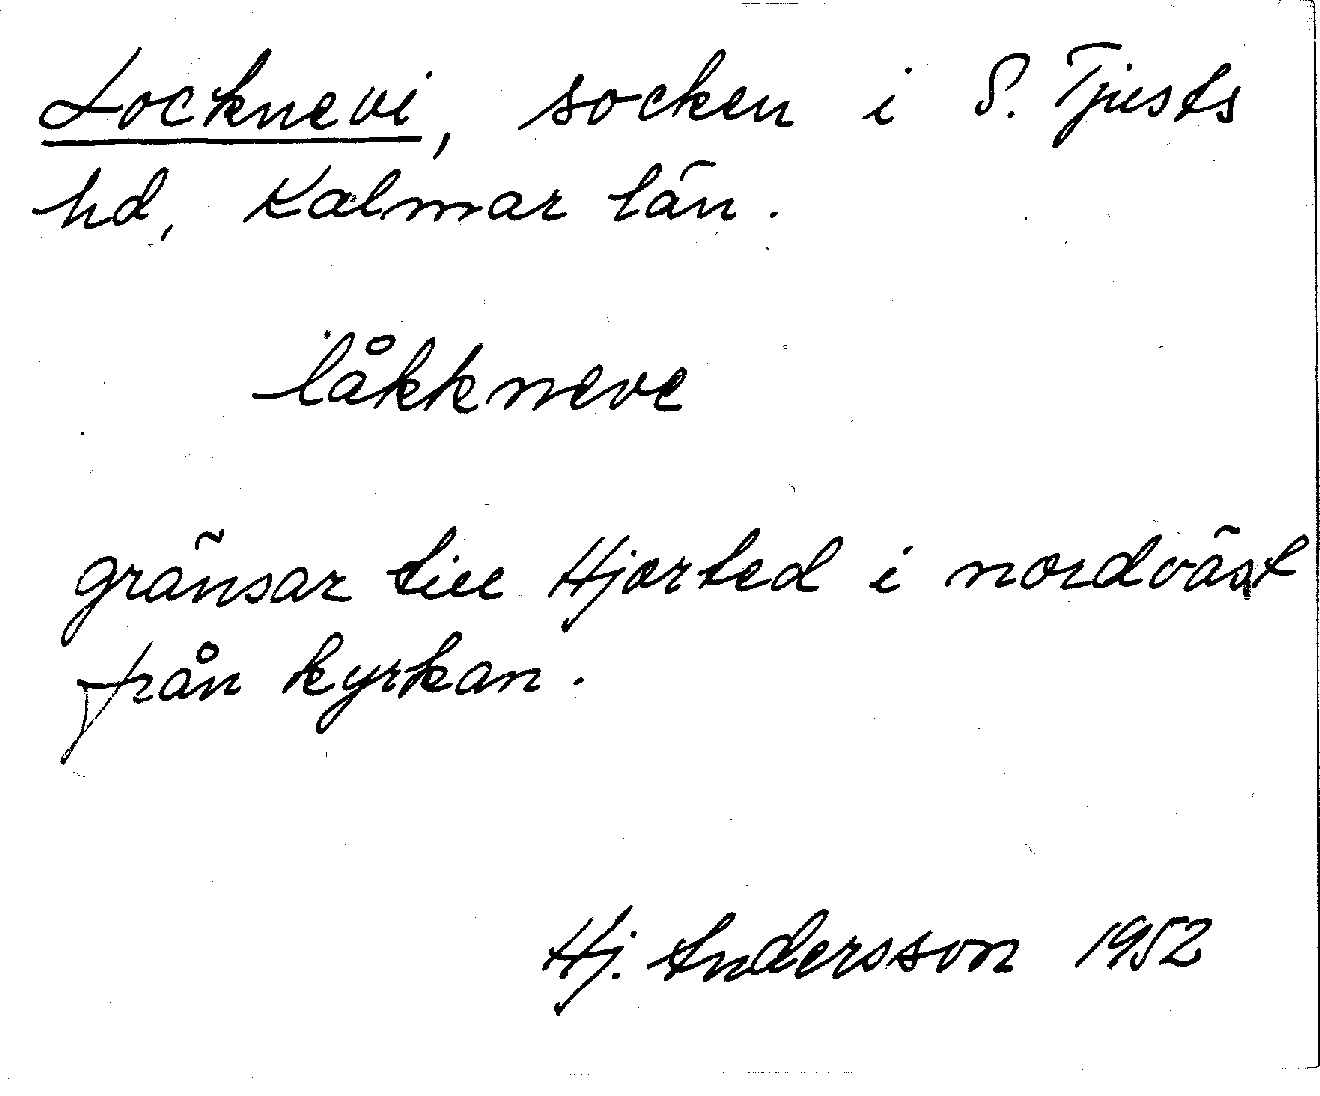 Locknevi, socken i S. Tjusts
hd, Kalmar län.
låkkneve
gränsar till Hjorted i nordväst
från kyrkan.
Hj. Andersson 1952